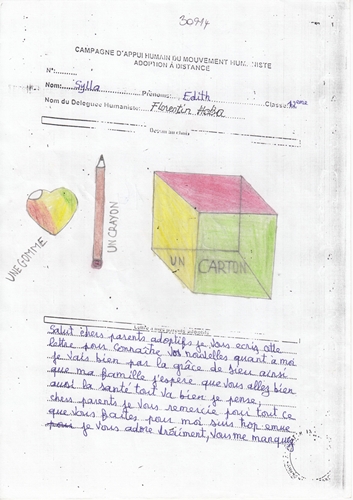 30714
CAMPAGNE D'APPUI HUMAIN DU MOUVEMENT HUMANISTE
ADOPTION A DISTANCE
N°:
Nom: Sylla Prénoms: Edith Classe:
Nom du Délégué Humaniste: Florentin
Dessin au choix
UNE GOMME
UN CRAYON
UN CARTON
Salut chers parents adoptifs je vous ecris cette
lettre pour connaître vos nouvelles quant à moi
je vais bien par la grâce de Dieu ainsi
que ma famille j'espère que vous allez bien
aussi la santé tout va bien je pense,
chers parents je vous remercie pour tout ce
que vous faites pour moi suis trop emue
je vous adore vraiment, vous me manquez